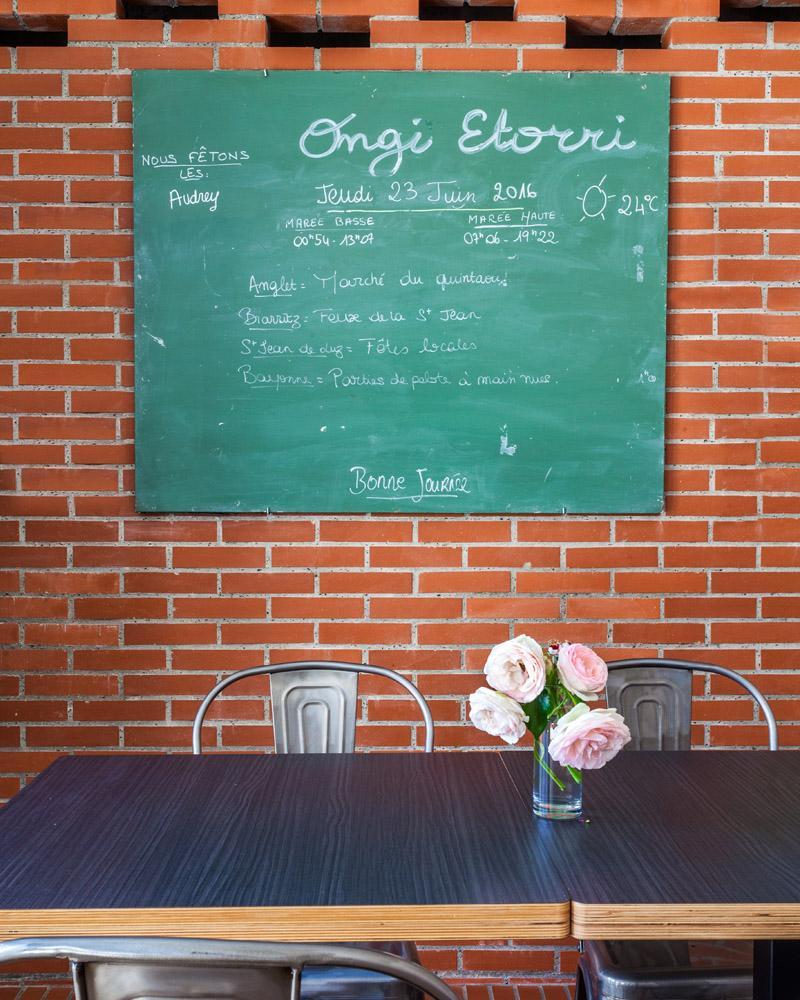 Ongi Etorri
NOUS FÊTONS
LES:
Audrey
Jeudi 23 Juin 2016
24°C
MAREE BASSE
00h54 - 13h07
MAREE HAUTE
07h06 - 19h22
Anglet = Marché du quintaou!
Biarritz = Feux de la St Jean
St Jean de Luz = Fêtes locales
Bayonne = Parties de pelote à main nues.
Bonne Journée